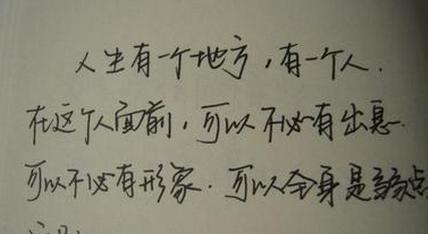 人生有一个地方，有一个人．
在这个人面前，可以不必有出息．
可以不必有形象．可以全身是缺点